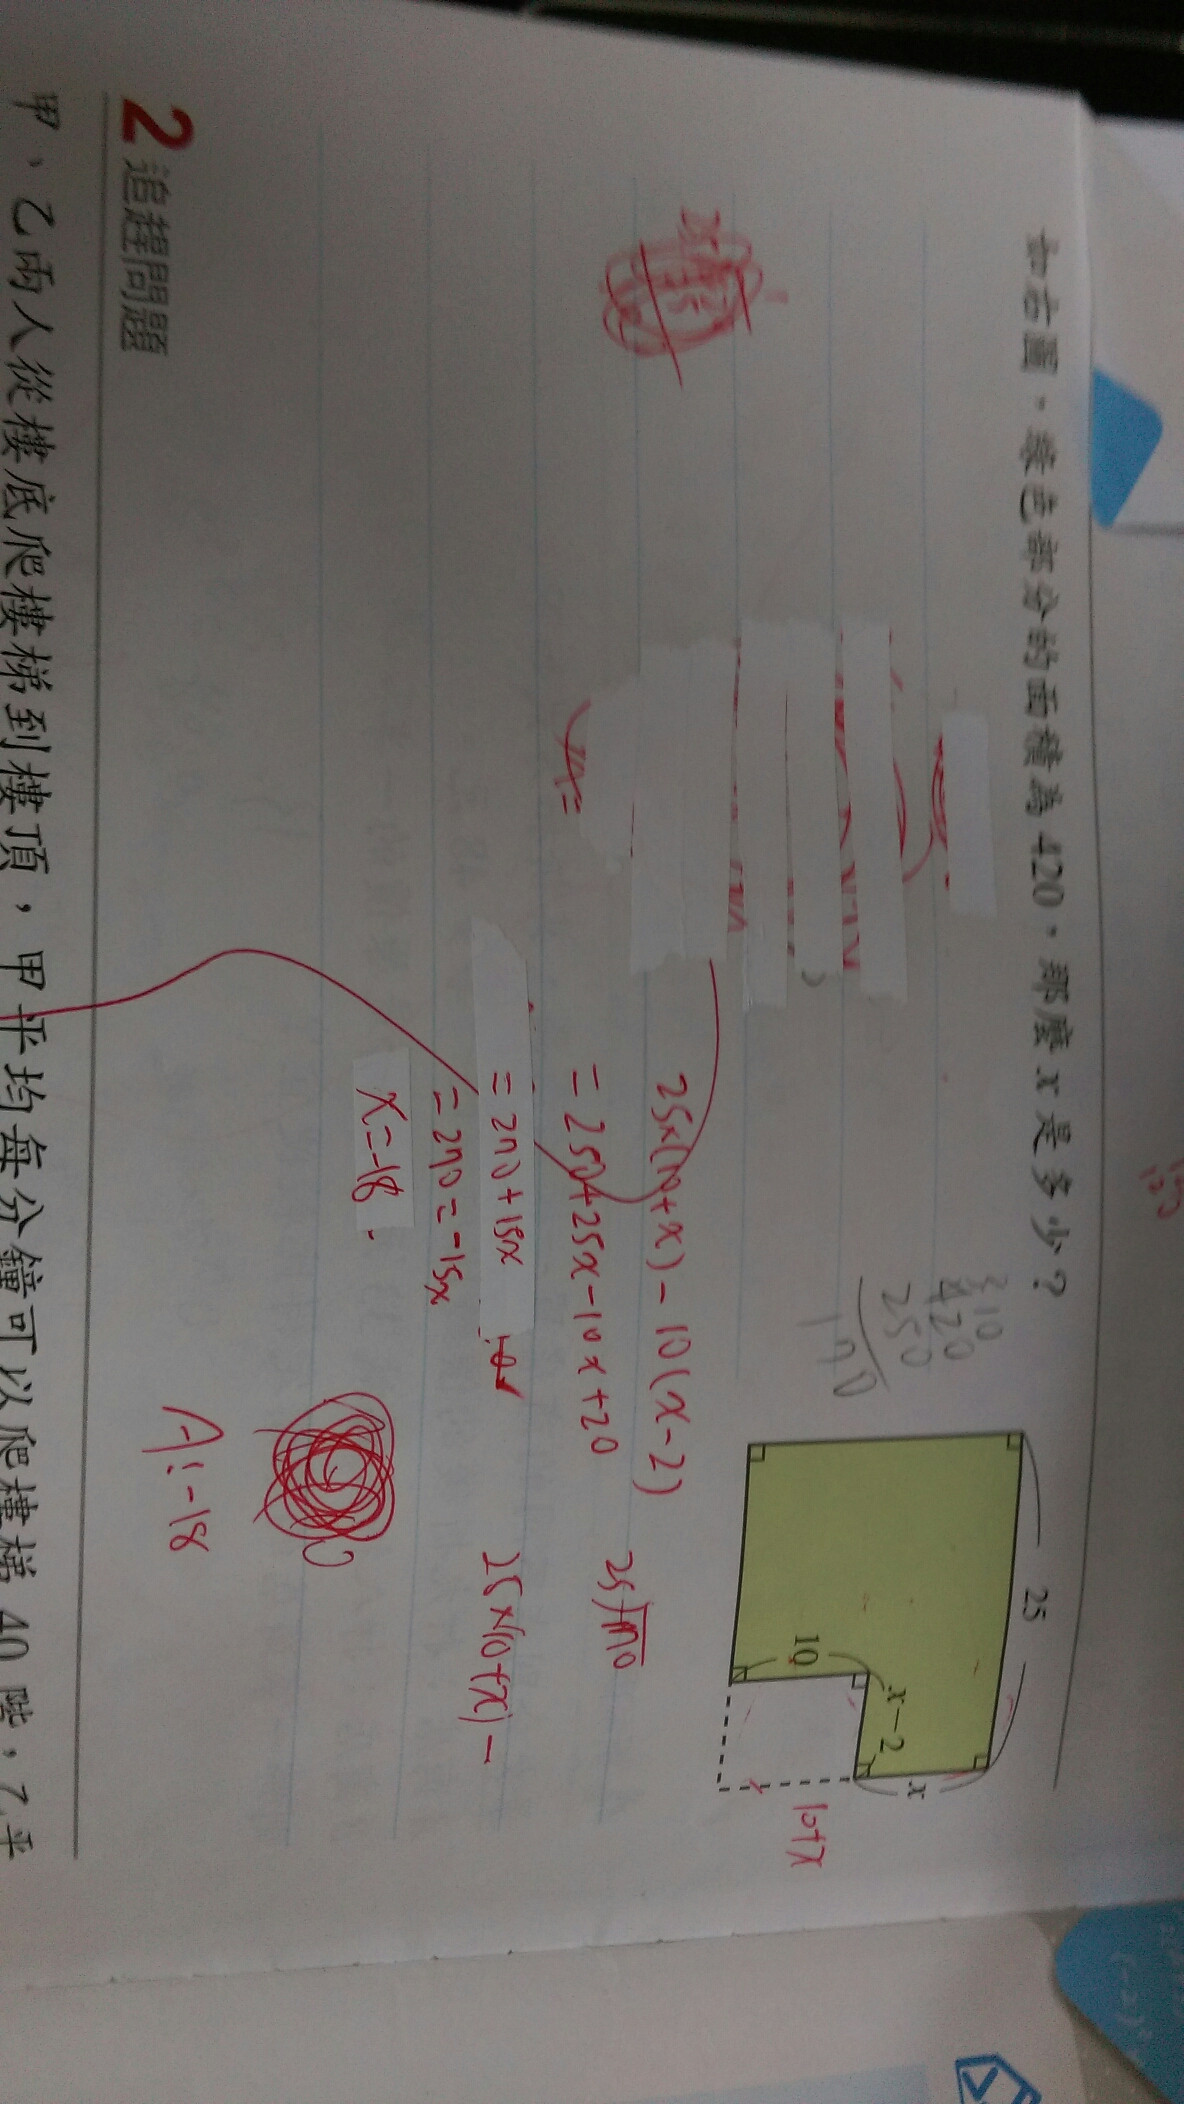 如右圖,綠色部分的面積為 420,那麼 x 是多少?
310
420
250
170
25
10
x-2
x
10+x
25x(10+x)-10(x-2)
=250+25x-10x+20
=270+15x
=270=-15x
x=-18
25×(10+x)-
A:-18
2 追趕問題
甲、乙兩人從樓底爬樓梯到樓頂,甲平均每分鐘可以爬樓梯 40 階,乙平